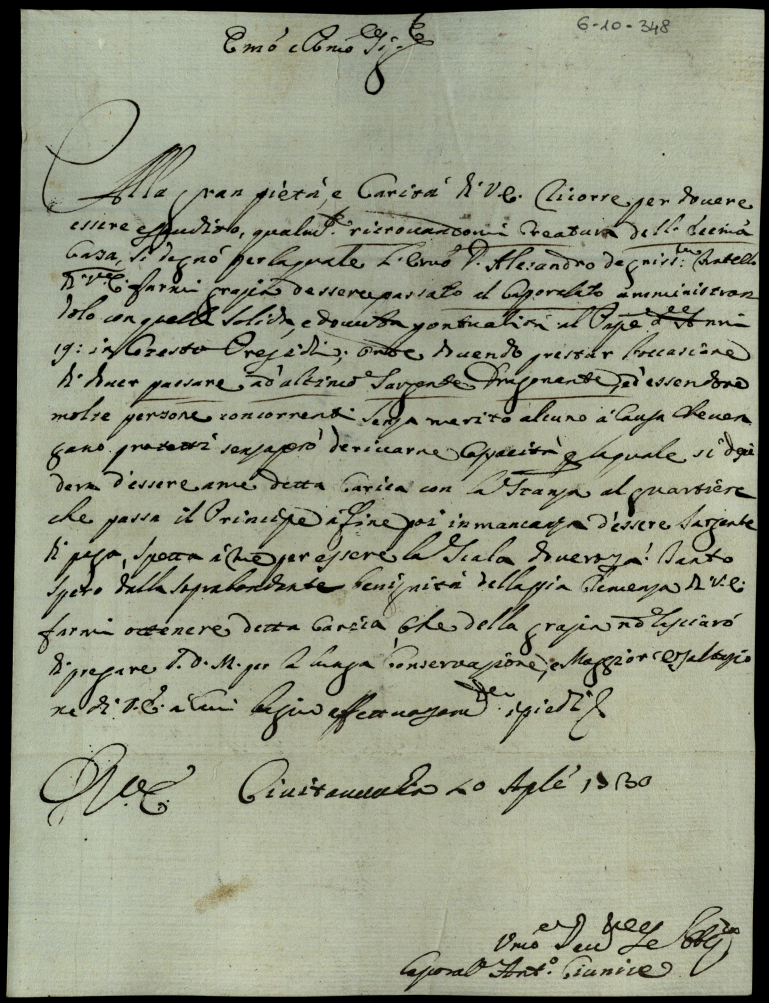 6-10-348
Emo e Rmo Sig.re
Alla gran pietà, e Carità di V.E. ricorre per dovere
essere esaudito, qualm.te ritrovandomi Creatura dell'
Casa, si degnò per la quale l'Emo D. Alesandro degniss:mo fratello
di V.E. farmi grazia d'essere passato al Caporalato amministran
dolo con quella solita, e dovuta pontualità al Papa d' Anni
19: in questo Presidi; onde dovendo prestar l'occasione
di dover passare ad altimo Sargente Dragonante, ed essendove
molte persone concorrenti senza merito alcuno à causa che ven
gano protetti senza però derivarne capacità p la quale si desi
dera d'essere à me detta Carica con la Stanza al quartiere
che passa il Principe à fine poi in mancanza d'essere Sargente
di paga, spetta à me per essere la Scala doverosa! Tanto
spero dalla soprabondante benignità della pia Clemenza di V.E.
farmi ottenere detta Carcia, che della grazia nō lasciarò
di pregare S.D.M. per la lunga Conservazione, e Maggior Esaltazio
ne di V.E. à cui bagio i piedi
Di V.E. Civitavecchia 20 Aple 1730
Umo Dev. Obb.
Caporal Ant.o